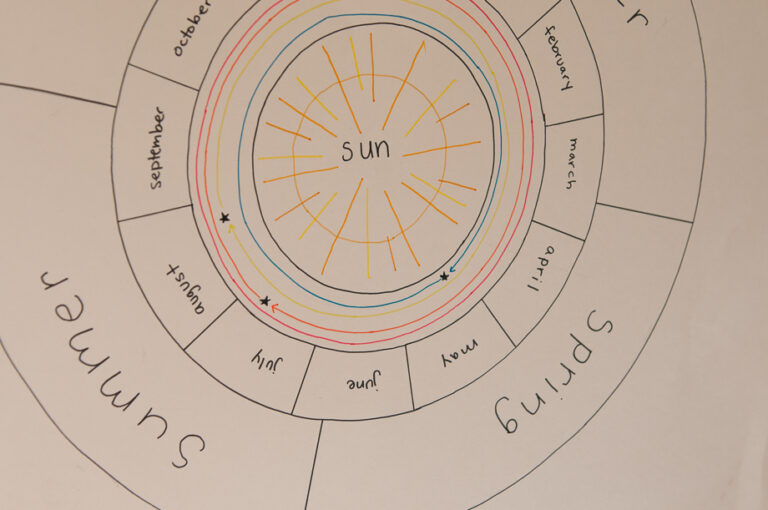 sun
february
march
april
may
june
july
august
september
october
r
Spring
Summer